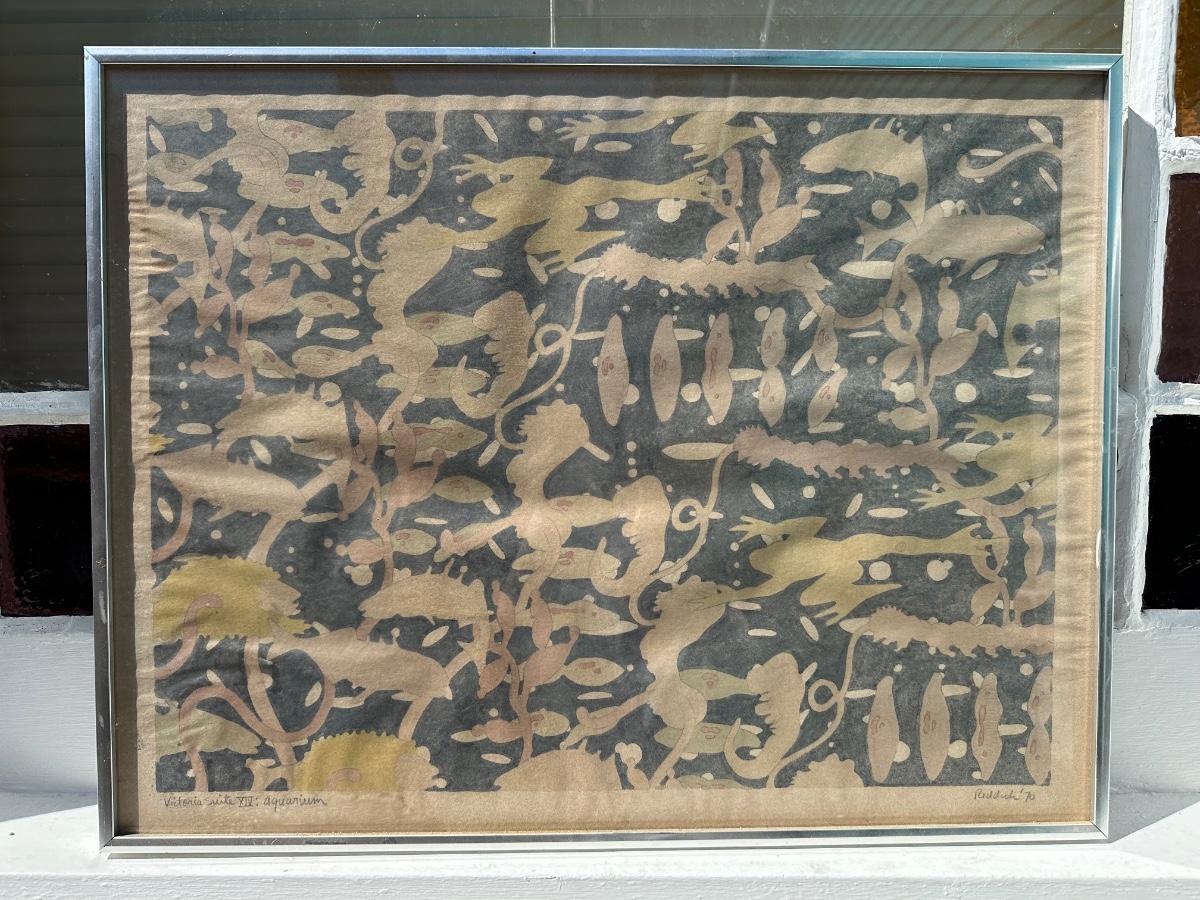 Victoria Suite XIV: aquarium
Reddick '70